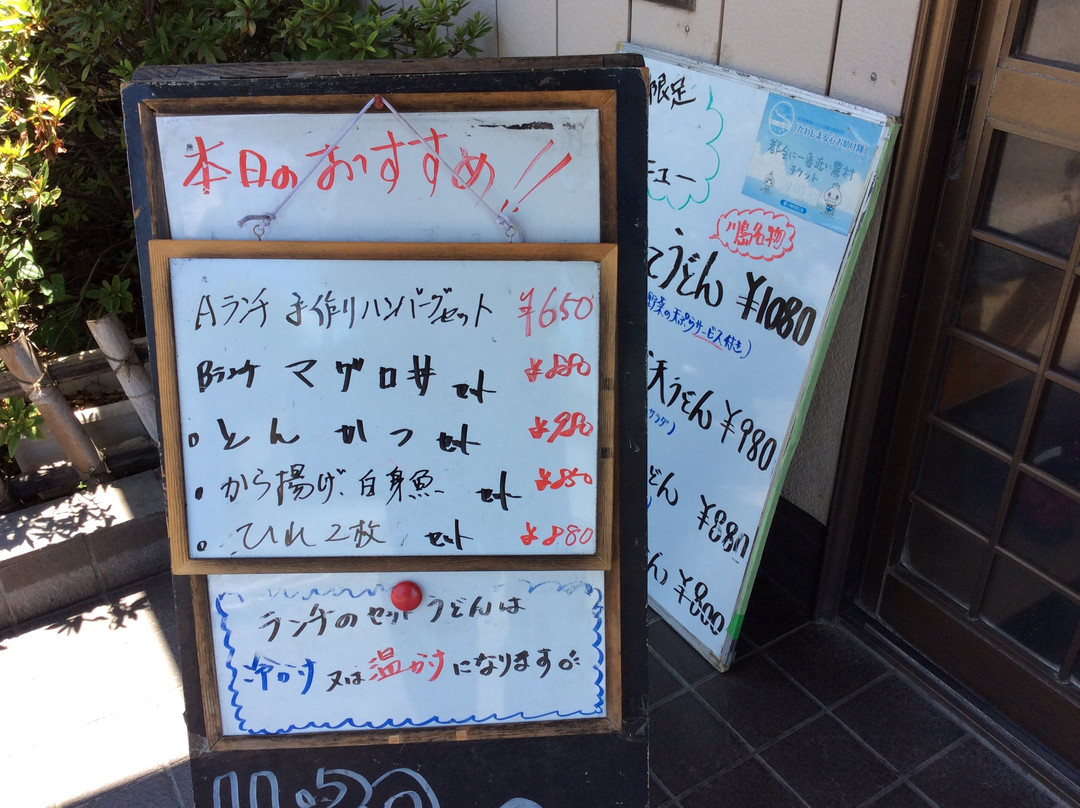 本日のおすすめ!!
Aランチ 手作りハンバーグセット ¥650
Bランチ マグロ丼 セット ¥880
・とんかつ セット ¥980
・から揚げ、白身魚 セット ¥850
・ひれ2枚 セット ¥880
ランチのセットうどんは
冷かけ 又は 温かけ になります。
11:30
限定
ニュー
かわしま安心お助け隊
都会に一番近い農村
チケット
川島名物
うどん ¥1080
野菜の天ぷらサービス付き)
天うどん ¥980
サラダ)
うどん ¥880
ん ¥800